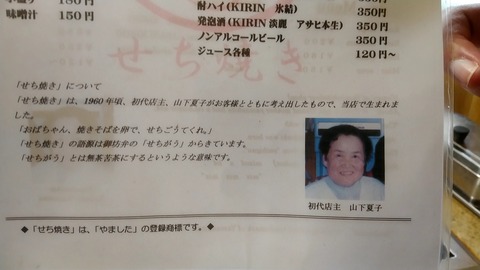 味噌汁 150円
酎ハイ(KIRIN 氷結) 350円
発泡酒(KIRIN 淡麗 アサヒ本生) 350円
ノンアルコールビール 350円
ジュース各種 120円~
せち焼き
「せち焼き」について
「せち焼き」は、1960年頃、初代店主、山下夏子がお客様とともに考え出したもので、当店で生まれま
した。
「おばちゃん、焼きそばを卵で、せちごうてくれ。」
「せち焼き」の語源は御坊弁の「せちがう」からきています。
「せちがう」とは無茶苦茶にするというような意味です。
初代店主 山下夏子
◆「せち焼き」は、「やました」の登録商標です。◆